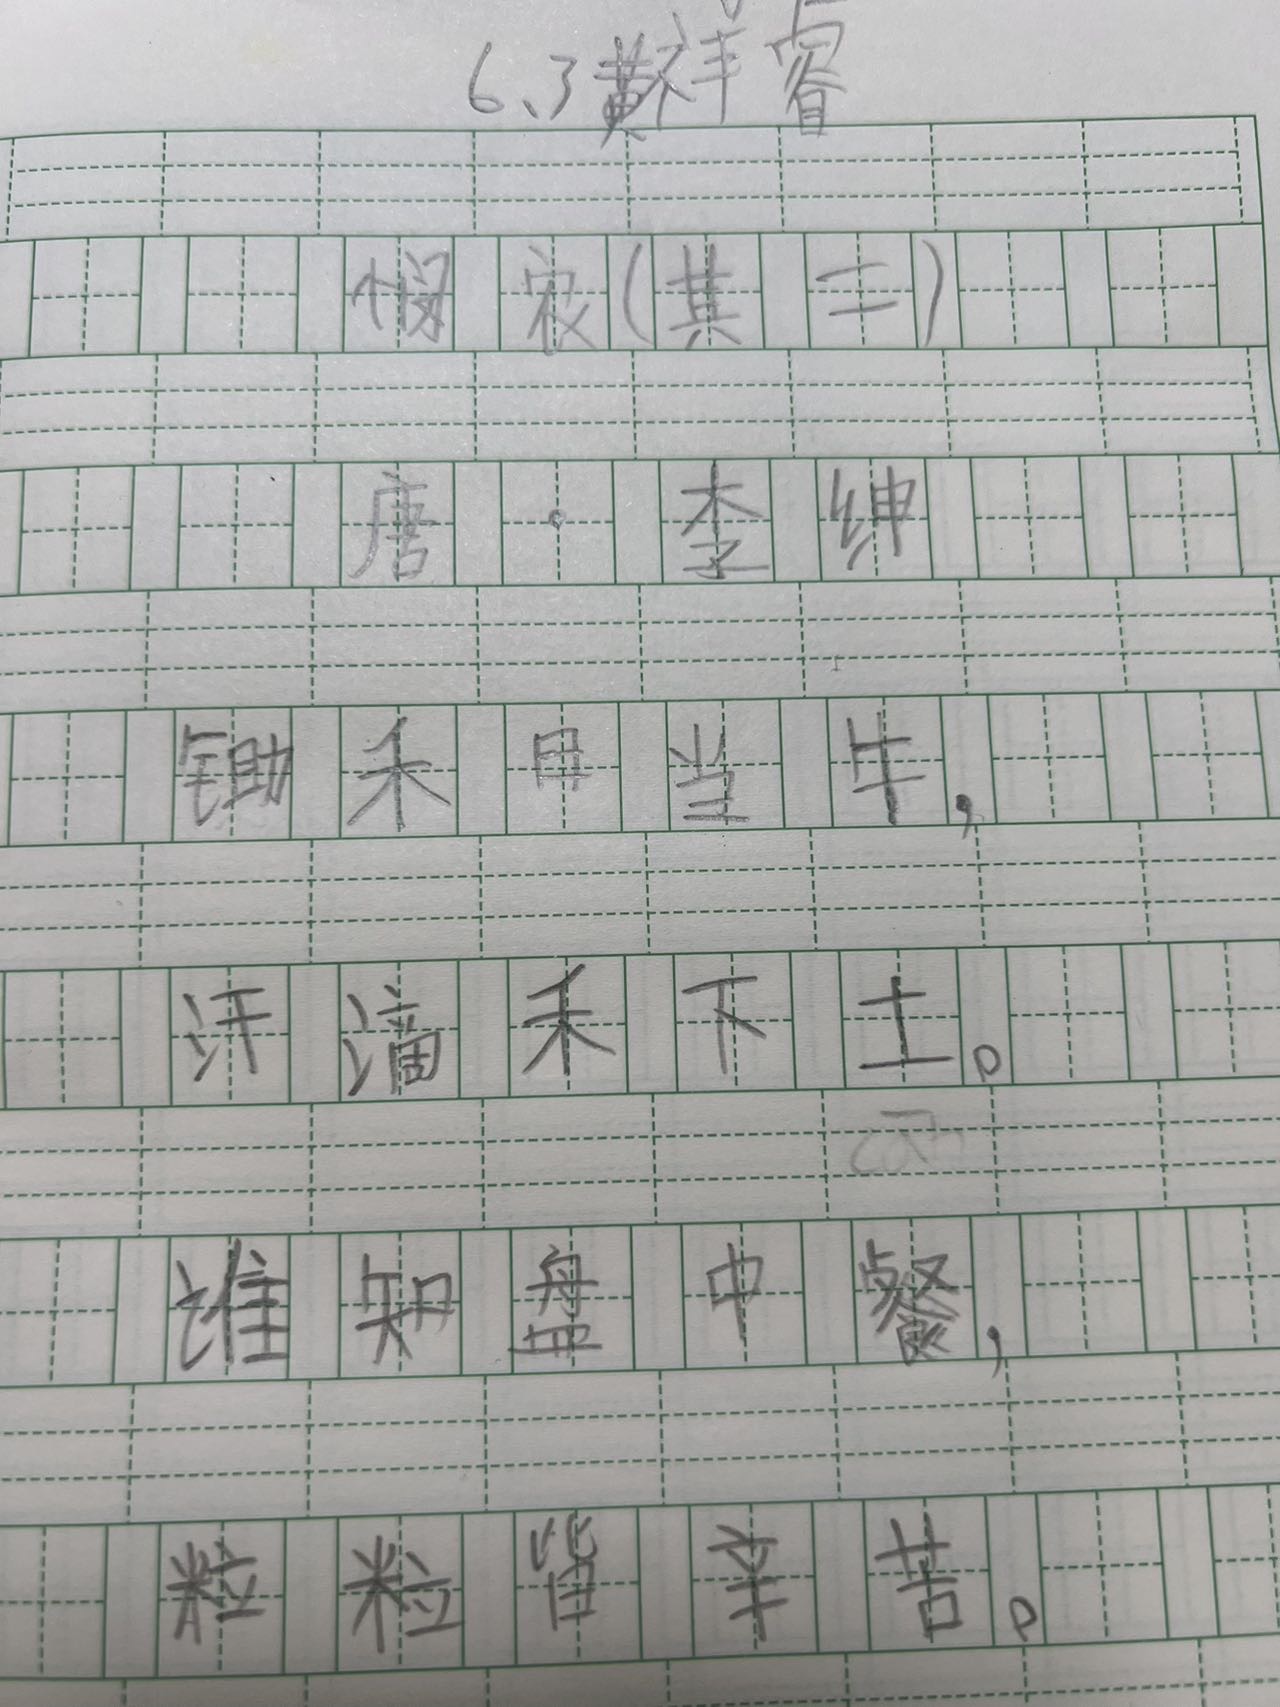 6.3黄祥睿
悯农(其二)
唐·李绅
锄禾日当午,
汗滴禾下土。
谁知盘中餐,
粒粒皆辛苦。